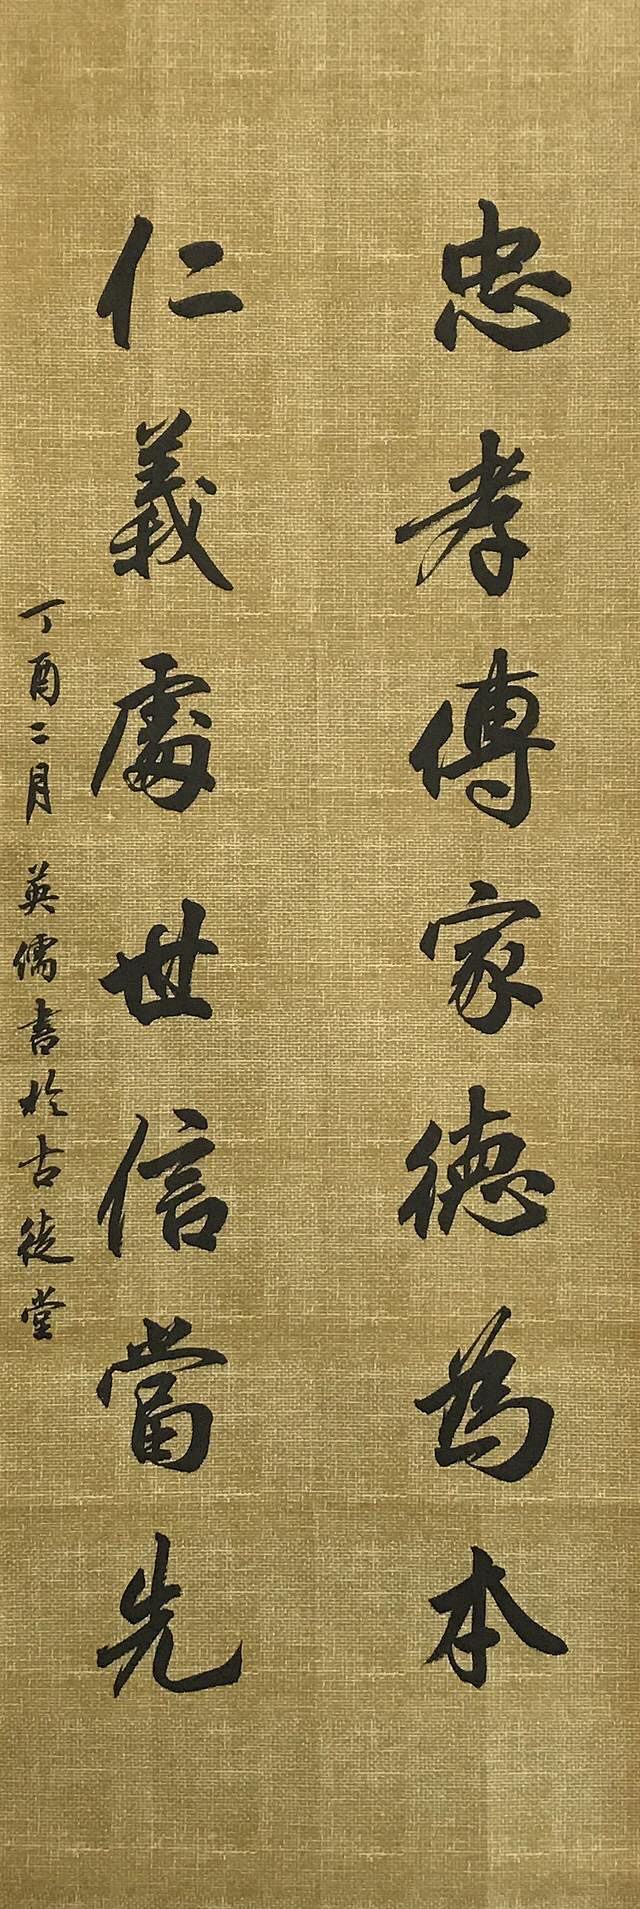 忠孝傳家德為本
仁義處世信當先
丁酉二月 英儒書於古徒堂